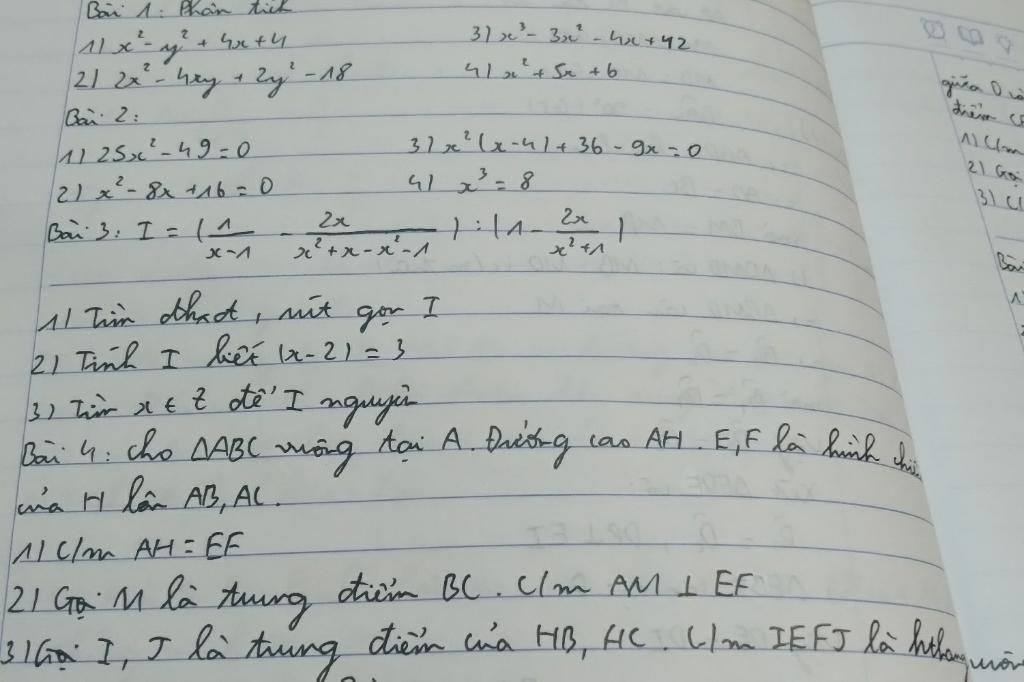 Bài 1: Phân tích
1) x² - y² + 4x + 4 3) x³ - 3x² - 4x + 42
2) 2x² - 4xy + 2y² - 18 4) x² + 5x + 6
Bài 2:
1) 25x² - 49 = 0 3) x² (x - 4) + 36 - 9x = 0
2) x² - 8x + 16 = 0 4) x³ = 8
Bài 3: I = (1/(x-1) - 2x/(x²+x-x²-1)) : (1 - 2x/(x²+1))
1) Tìm đkxđ, rút gọn I
2) Tính I biết (x-2) = 3
3) Tìm x ∈ Z để I nguyên
Bài 4: Cho ΔABC vuông tại A. Đường cao AH. E, F là hình chiếu
của H lên AB, AC.
1) C/m AH = EF
2) Gọi M là trung điểm BC. C/m AM ⊥ EF
3) Gọi I, J là trung điểm của HB, HC. C/m IEFJ là hthang vuông
giữa D và
điểm
1) C/m
2) Gọi
3) C/
Bài
1)